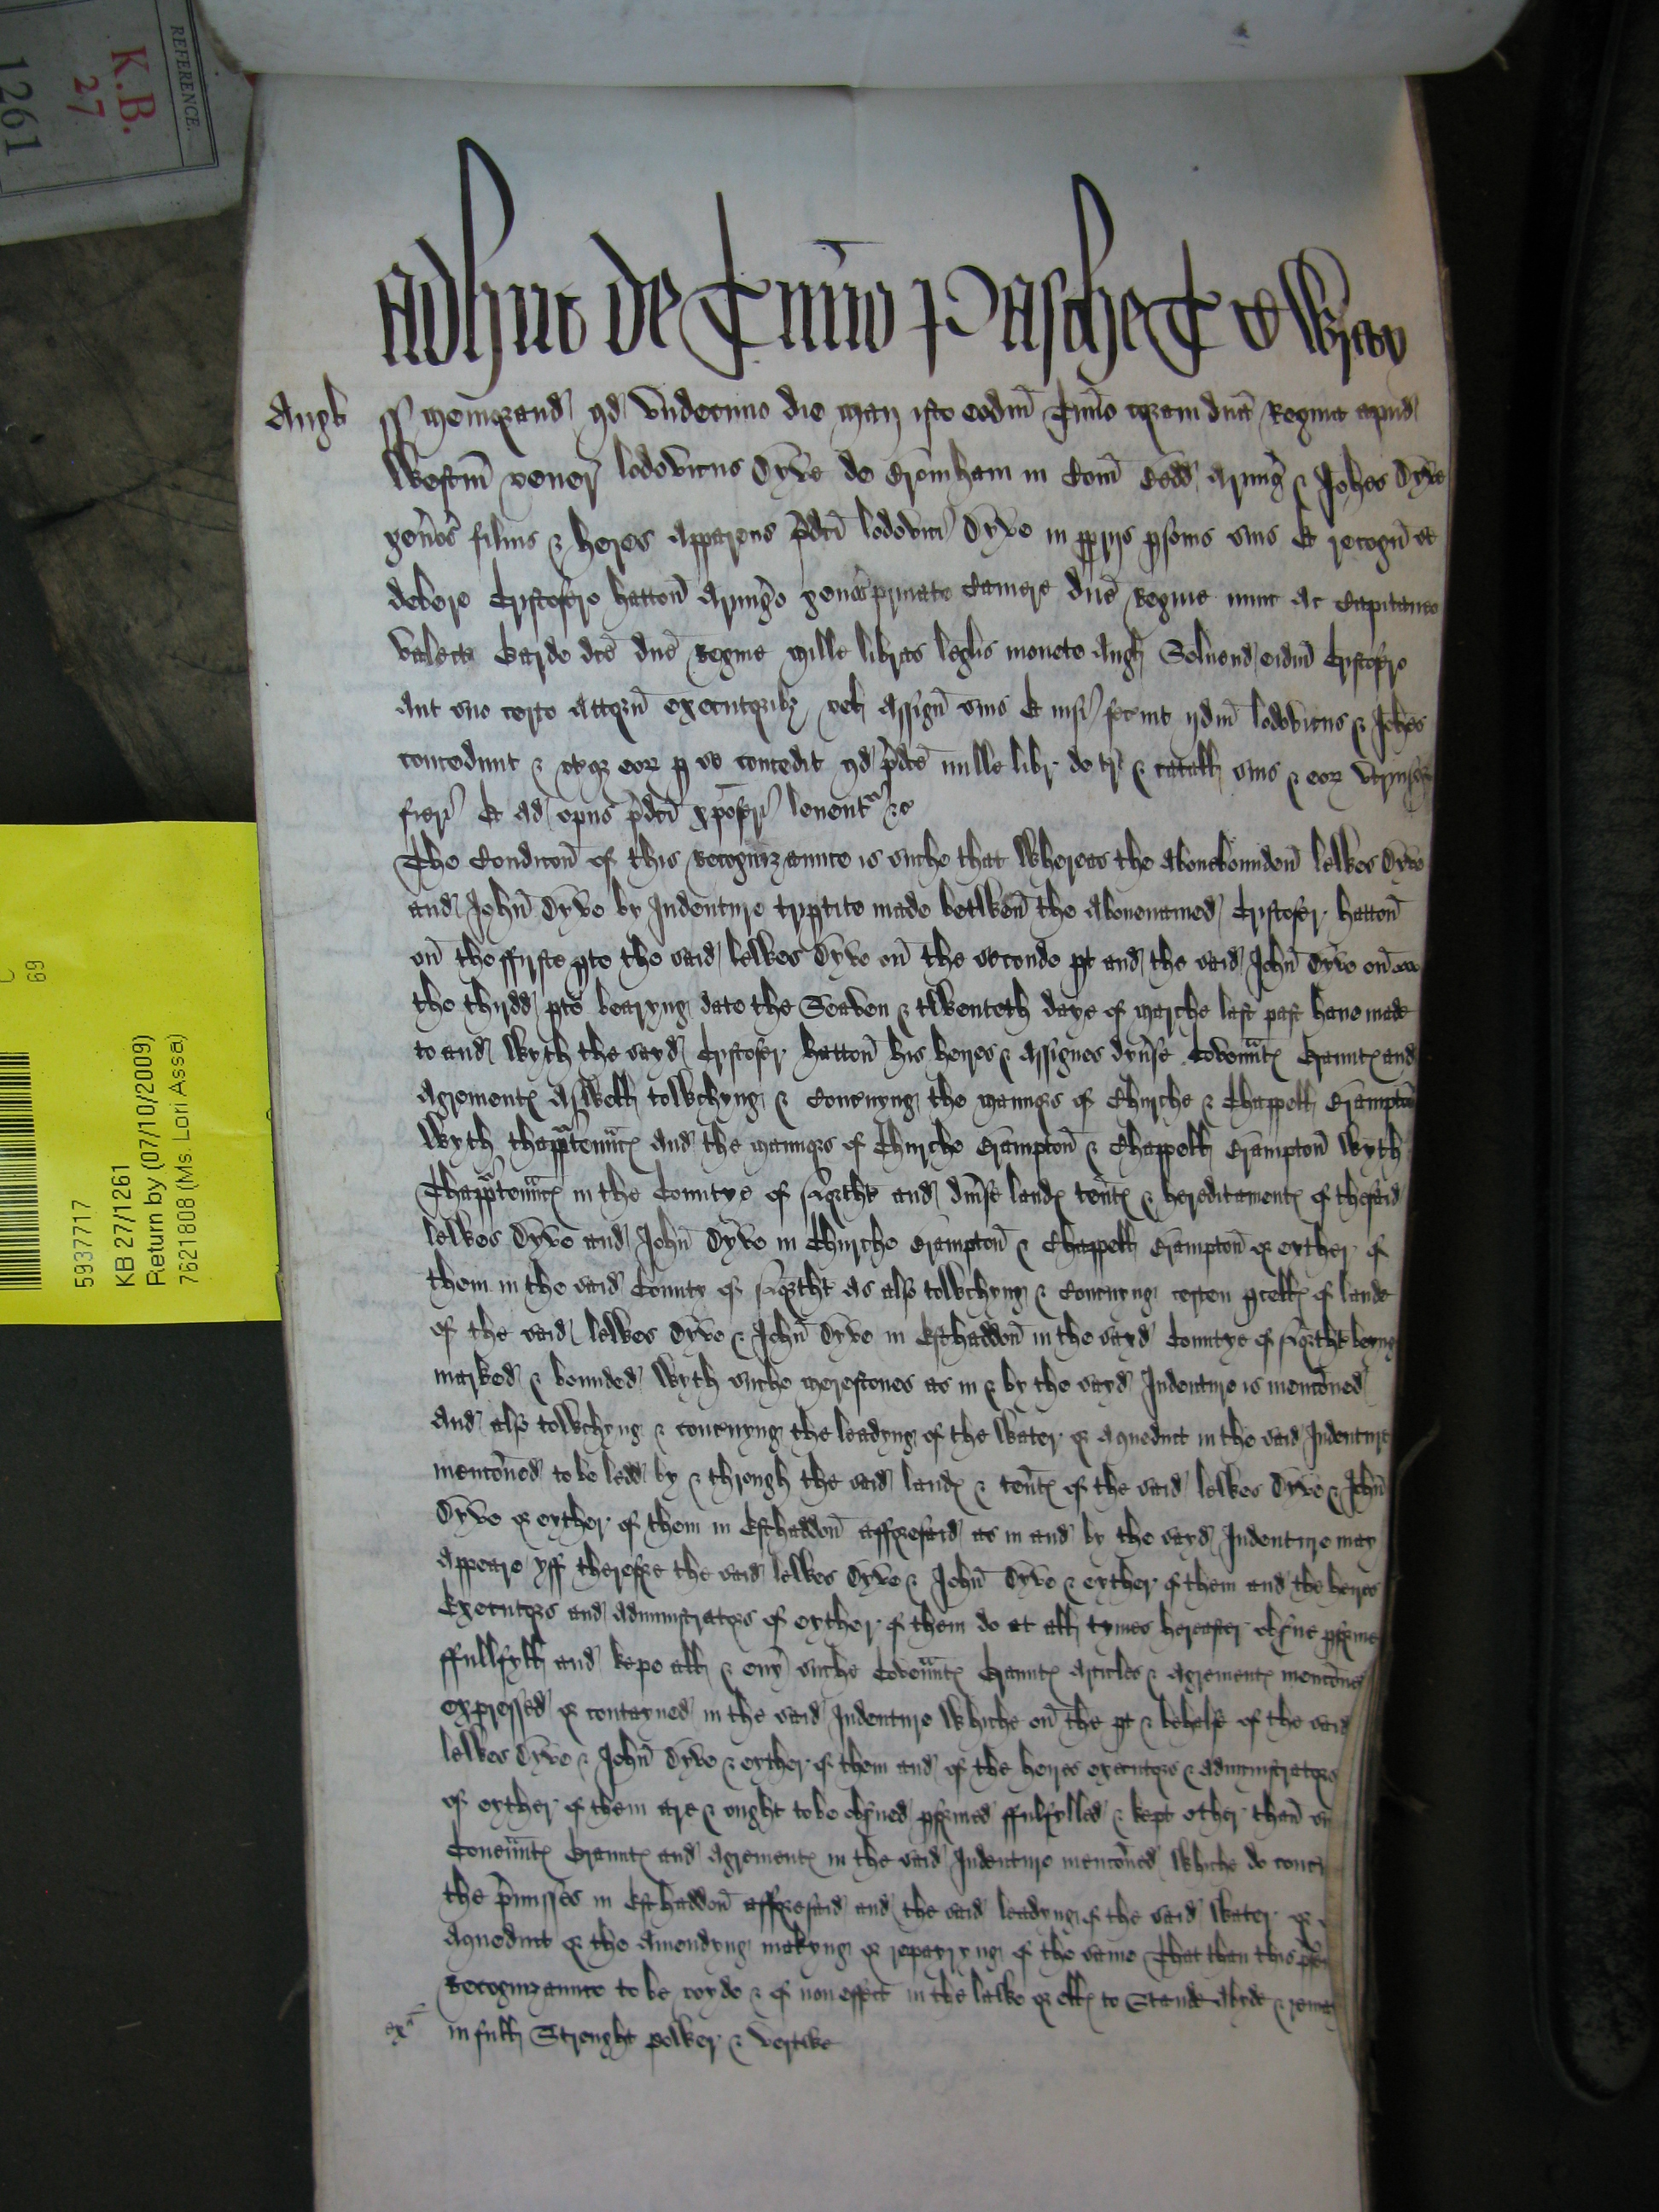 REFERENCE.
K.B.
27
1261
69
5937717
KB 27/1261
Return by (07/10/2009)
7621808 (Ms. Lori Assa)
Adhuc de Tmĩo Pasche T
Angł ss Memorand qd undecimo die Maij isto eodm̃ Tmĩo coram dña Regina apud
Westm̃ vener Lodovicus Dyve de Bromham in Com̃ Bedd Armig̃ & Johes Dyve
geños̃ filius & heres Apparens p̃dci Lodovici Dyve in pprijs psonis suis Et recogñ se
debere Cristofero Hatton̄ Armig̃o geños̃ private Camere dñe Regine nunc Ac Capitaneo
Valect Garde dce dñe Regine Mille libras leglis monete Angł Solvend eidm̃ Cristofero
Aut suo certo Attorñ executoribz vel Assigñ suis Et nisi fecint ijdm̃ Lodovicus & Johes
concedunt & uterqz eor p se concedit qd p̃dce mille libr de tr̃ & catall suis & eor utriusqz
fieri Et ad opus p̃dci Xpoferi levent &c
The Condicon̄ of this Recognizaunce is suche that Whereas the abovebounden̄ Lewes Dyve
and John̄ Dyve by Indenture trȷptite made betwen̄ the Abovenamed Cristofer Hatton̄
on̄ the ffyrste pte the said Lewes Dyve on̄ the seconde pt and the said John̄ Dyve on̄
the thyrdd pte bearyng date the Seaven & twenteth daye of Marche last past have made
to and Wyth the sayd Cristofer Hatton̄ his heyres & Assignes dyṽse Covenñtę Grauntę and
Agrementę Aswell towchyng & Concnyng the mannors of Churche & Chappell Brampton̄
Wyth thapptenñcę And the mannors of Churche Brampton̄ & Chappell Brampton̄ Wyth
Thapptenñcę in the Countye of Northt and div̄se landę tentę & hereditamentę of thesaid
Lewes Dyve and John̄ Dyve in Churche Brampton̄ & Chappell Brampton̄ or eyther of
them in the said County of Northt As also towchyng & Concnyng certen pcellę of lande
of the said Lewes Dyve & John̄ Dyve in Esthaddon̄ in the sayd Countye of Northt beyng
marked & bounded Wyth suche merestones as in & by the sayd Indenture is menconed
And also towchyng & concnyng the leadyng of the Water or Aqueduct in the said Indenture
menconed to be ledd by & through the said landę & tentę of the said Lewes Dyve & John̄
Dyve or eyther of them in Esthaddon̄ afforesaid as in and by the sayd Indenture may
Appeare yff therefore the said Lewes Dyve & John̄ Dyve & eyther of them and the heires
Executors and Administrators of eyther of them do at all tymes hereafter obsve pforme
ffullfyll and kepe all & ev̄y suche Covenñtę Grauntę Articles & Agrementę mencone
expressed or contayned in the said Indenture Whiche on̄ the pt & behalfe of the said
Lewes Dyve & John̄ Dyve & eyther of them and of the heyres executors & Administrators
of eyther of them are & ought to be obsved pformed ffulfylled & kept other than̄
Covenñtę Grauntę and Agrementę in the said Indenture menconed Whiche do conc
the p̃misses in Esthaddon̄ afforesaid and the said leadyng of the said Water or
Aqueduct or the Amendyng makyng or repayryng of the same That than this
Recognizaunce to be voyde & of non effect in the lawe or ellę to Stande Abyde &
exr in full Strenght power & vertwe